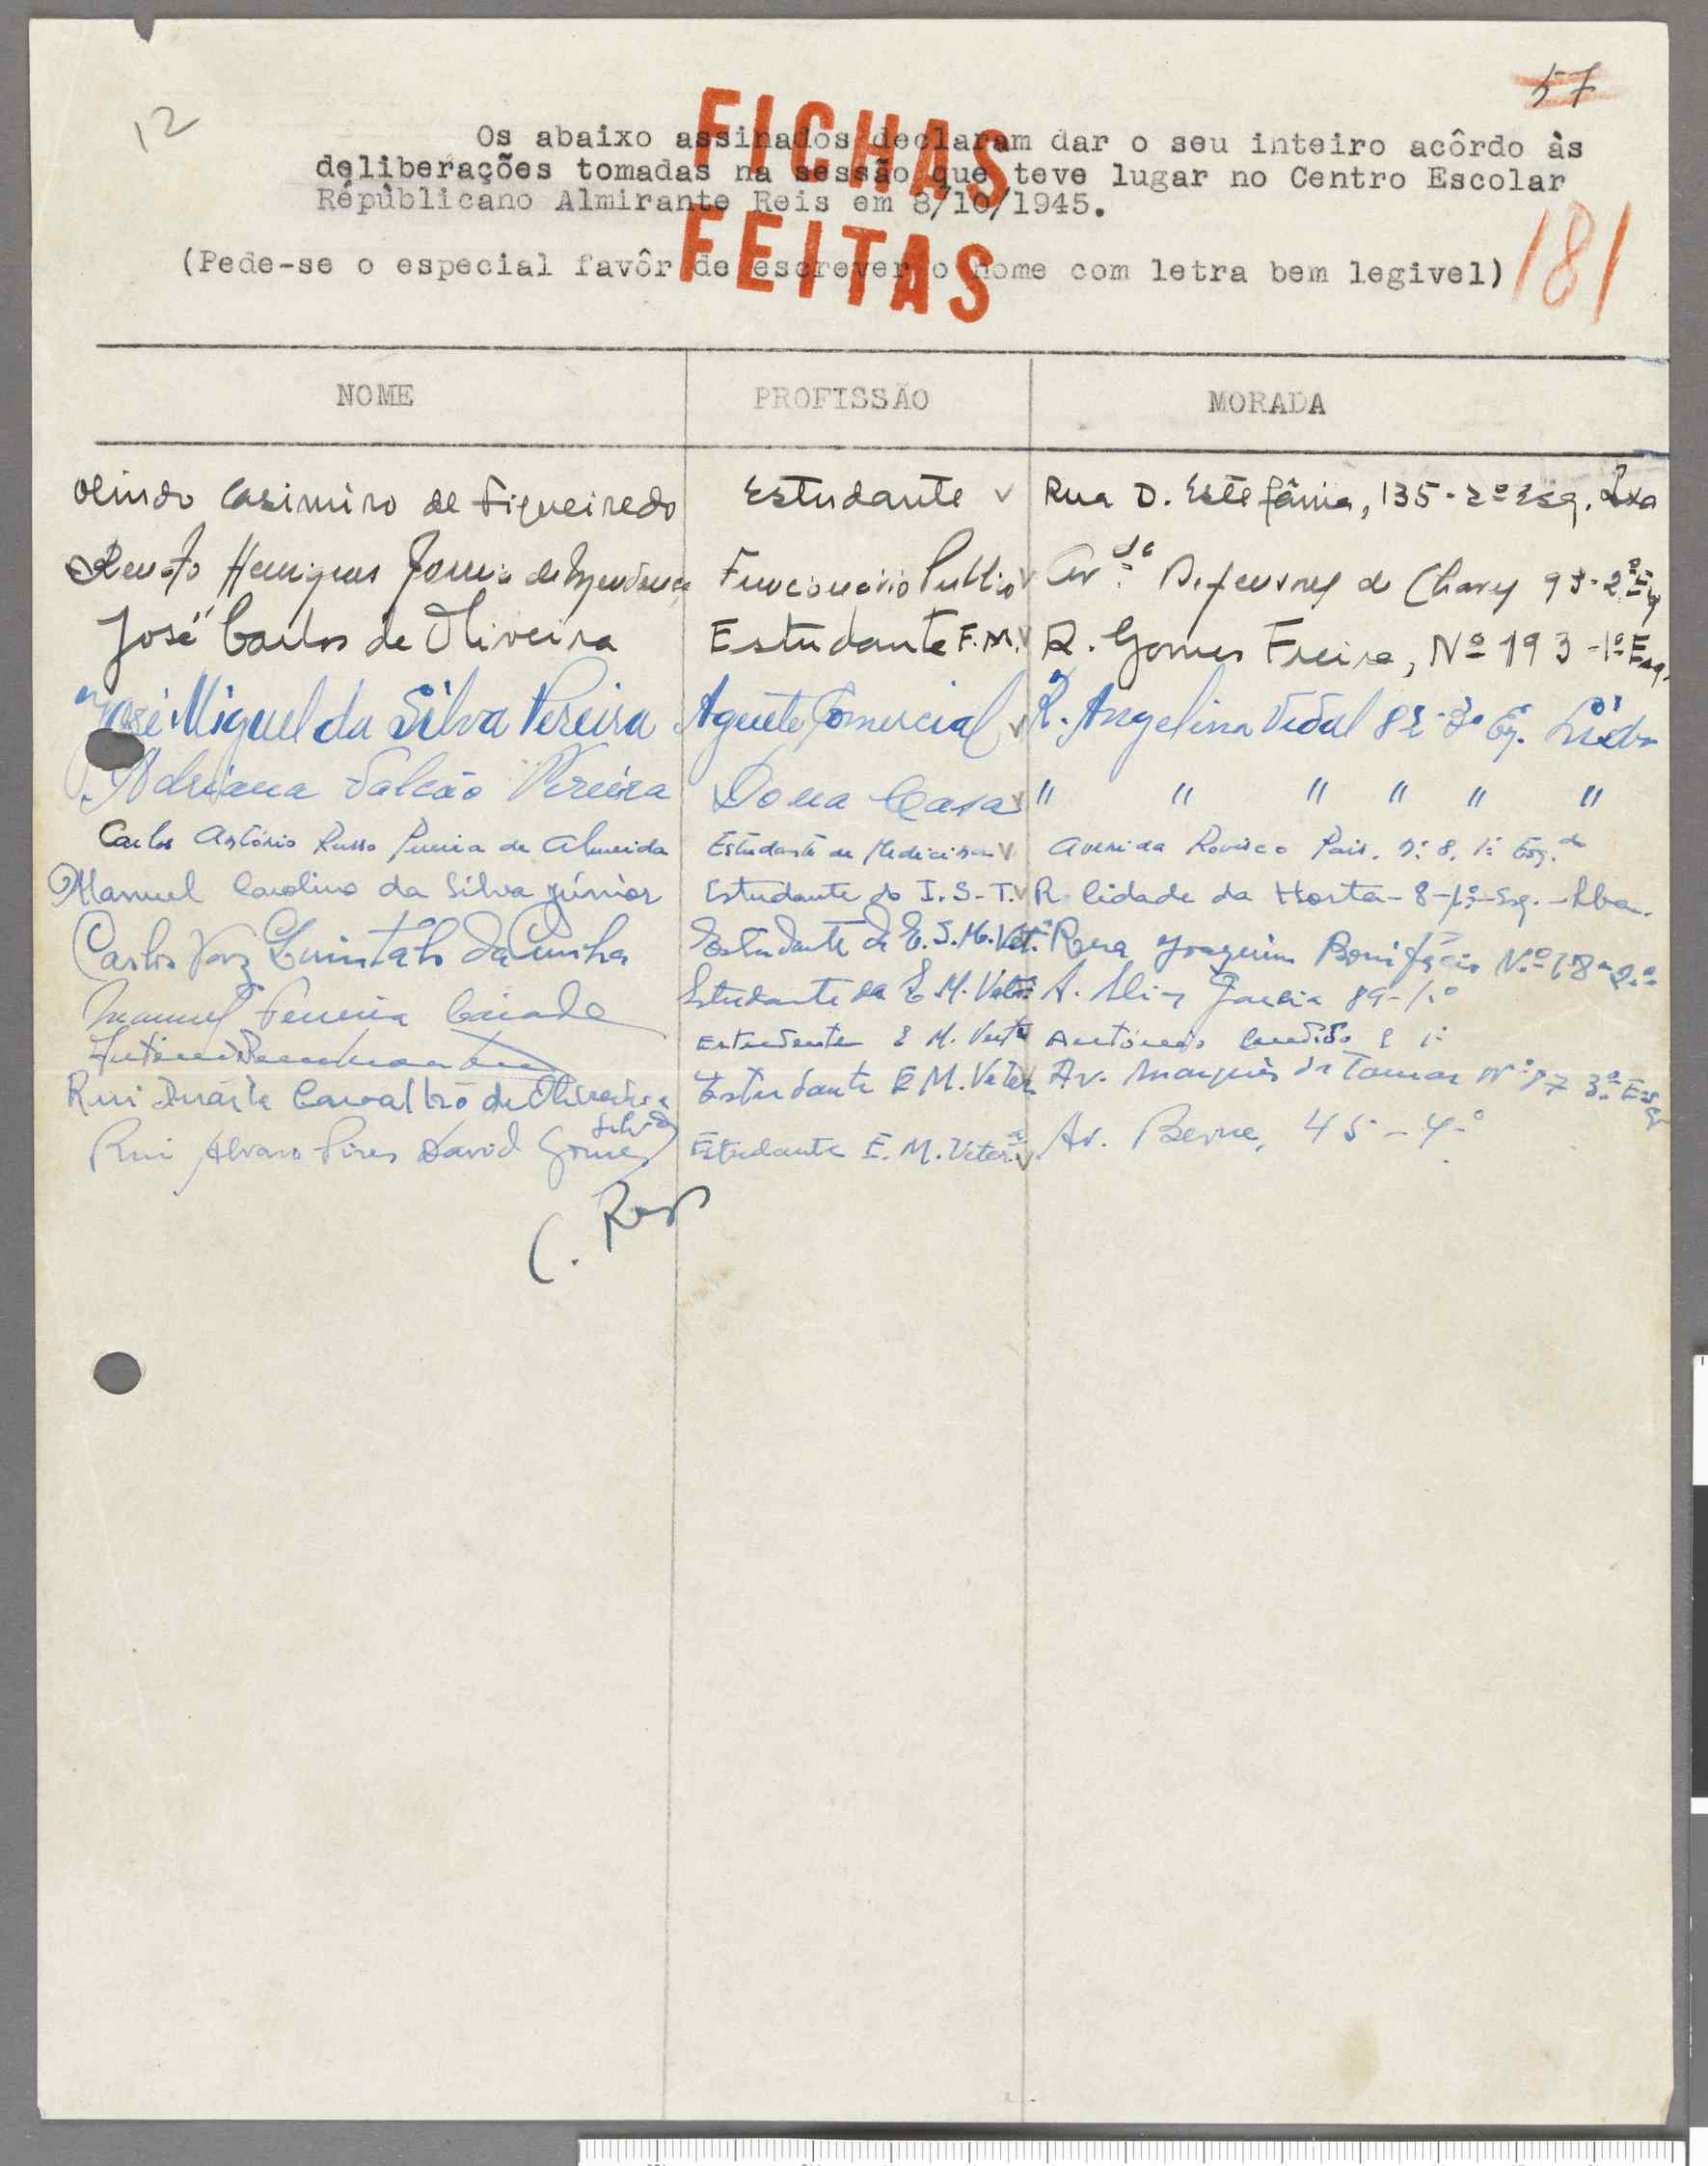 57
12
FICHAS
FEITAS
Os abaixo assinados declaram dar o seu inteiro acôrdo às
deliberações tomadas na sessão que teve lugar no Centro Escolar
Républicano Almirante Reis em 8/10/1945.
(Pede-se o especial favôr de escrever o nome com letra bem legivel)
181
NOME PROFISSÃO MORADA
Olindo Casimiro de Figueiredo Estudante Rua D. Estefânia, 135-2º Esq. Lxa
Renato Henriques de Funcionário Publico Av. Defensores de Chaves 93-2º
José Carlos de Oliveira Estudante F.M. R. Gomes Freire, Nº 193-1º Esq.
José Miguel da Silva Pereira Agente Comercial R. Angelina Vidal Lisboa
Adriana Falcão Pereira Dona Casa " " " " " "
Carlos António Russo Pereira de Almeida Estudante de Medicina Avenida Rovisco Pais, nº 8, 1º Esq.do
Manuel Carolino da Silva Júnior Estudante do I.S.T. R Cidade da Horta-8-1º-Esq.-Lxa.
Carlos Vaz Quintals da Cunha Estudante de E.S.M.Vet. Rua Joaquim Bonifácio Nº 18-2º
Manuel Ferreira Estudante da E M. Vetª A. Elias Garcia 89-1.º
Estudante E M. António Candido 1º
Rui Duarte Carvalho de Oliveira Silva Estudante E M. Veter Av. Marquês de Tomar Nº 3º Esq
Rui Alvaro Pires David Gomes Estudante E. M. Veter.ª Av. Berne, 45-4º
C. Ros